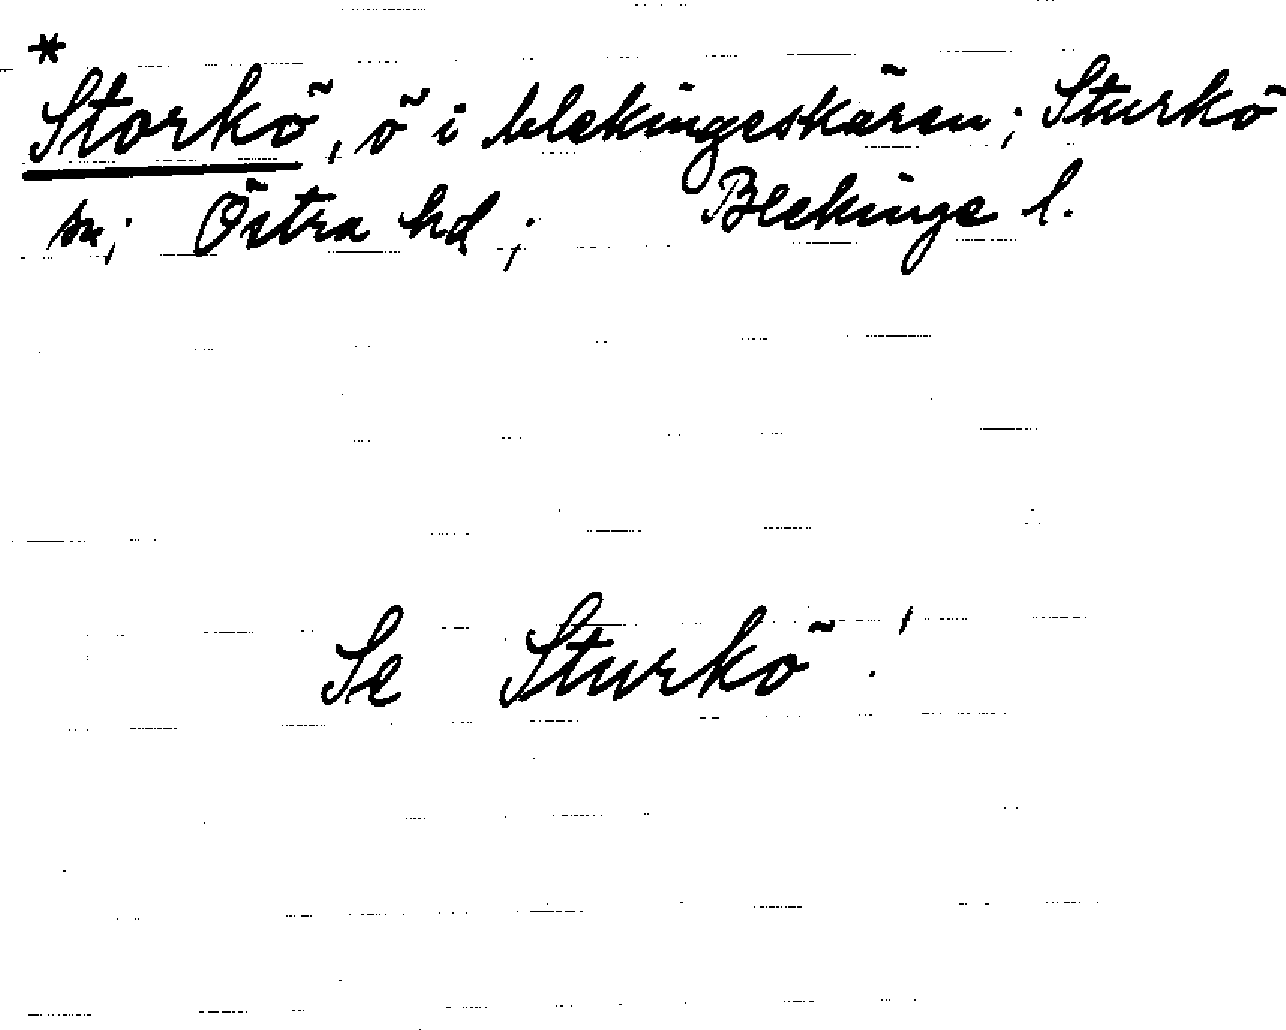 *
Storkö, ö i blekingeskären; Sturkö
sn; Östra hd; Blekinge l.
Se Sturkö!